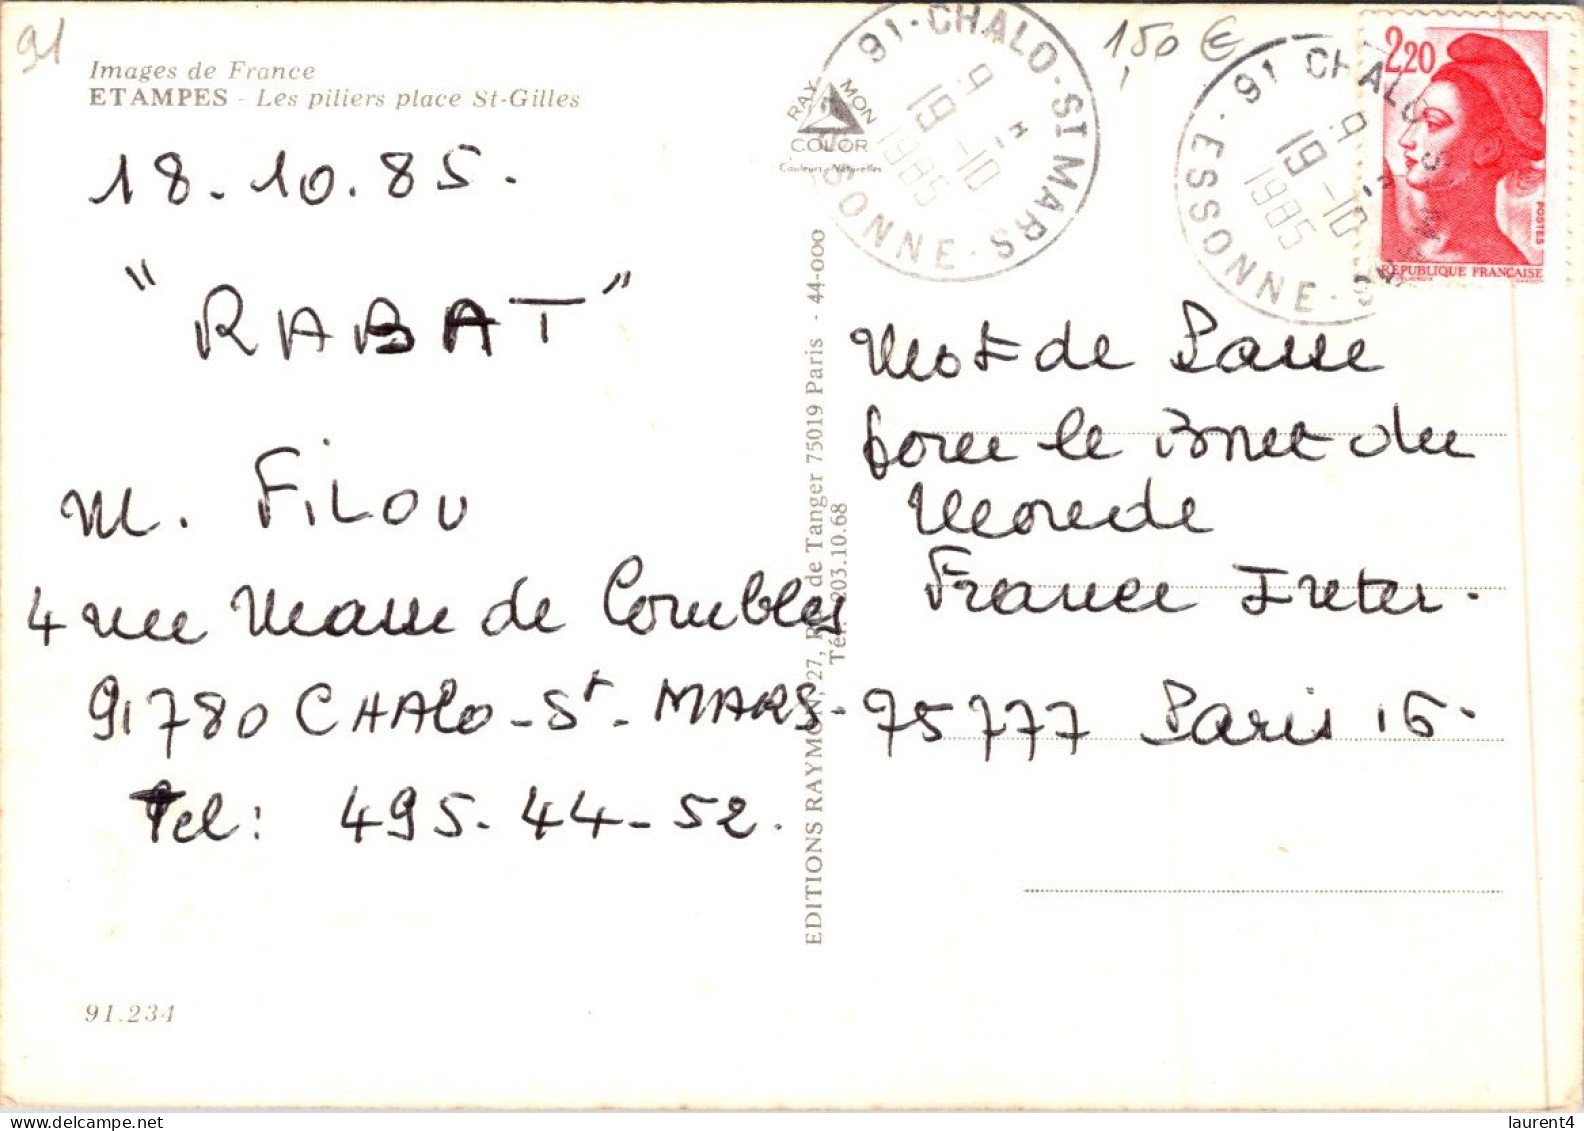 91
Images de France
ETAMPES - Les piliers place St-Gilles
18.10.85.
"RABAT"
M. FiLOU
4 rue Masse de Combles
91780 CHAlo-St-MARS-
Tel: 495-44-52.
91.234
RAYMON
COLOR
Couleurs Naturelles
EDITIONS RAYMON, 27, R de Tanger 75019 Paris - 44-000
Tél. 203.10.68
91-CHALO-ST MARS
9 H
19-10
1985
ESSONNE-S
1,50 €
91 CHALO ST MARS
9 H
19-10
1985
ESSONNE-S
2,20
POSTES
REPUBLIQUE FRANÇAISE
Mot de Passe
pour le Bout du
Monde
France Inter.
75777 Paris 16-
laurent4